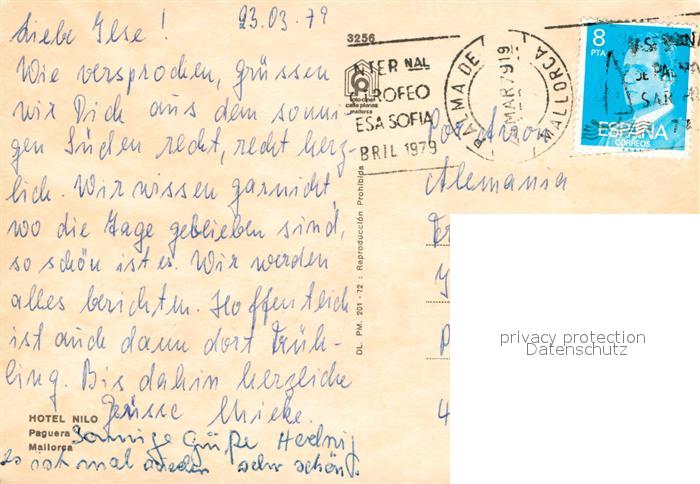 23.03.79
Liebe Ilse!
Wie versprochen, grüssen
wir Dich aus dem sonni-
gen Süden recht, recht herz-
lich. Wir wissen garnicht,
wo die Tage geblieben sind,
so schön ist es. Wir werden
alles berichten. Hoffentlich
ist auch dann dort Früh-
ling. Bis dahin herzliche
Grüsse Mieke.
Sonnige Grüße Hedwig
es ist mal wieder sehr schön!
HOTEL NILO
Paguera
Mallorca
3256
foto-cine
casa planas
mallorca
DL. PM. 201 - 72 : Reproducción Prohibida
INTERNAL
TROFEO
ESA SOFIA
BRIL 1979
PALMA DE MALLORCA
MAR 79
8
PTA
ESPAÑA
CORREOS
Por Avion
Alemania
privacy protection
Datenschutz